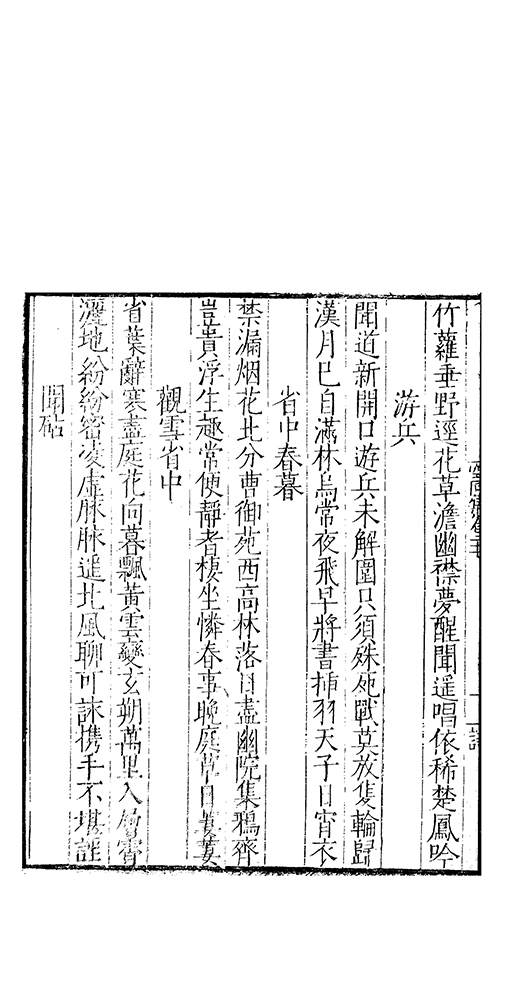 竹蘿垂野逕花草澹幽襟夢醒聞遥唱依稀楚鳳吟
游兵
聞道新開口遊兵未解圍只須殊死戰莫放隻輪歸
漢月巳自滿林烏常夜飛早將書揷羽天子日宵衣
省中春暮
禁漏烟花北分曹御苑西高林落日盡幽院集鴉齊
豈貴浮生趣常便靜者棲坐憐春事晚庭草日萋萋
觀雪省中
省葉辭寒盡庭花向暮飄黃雲變玄朔萬里入
灑地紛紛密凌虛脉脉遥北風聊可詠携手不堪
聞砧